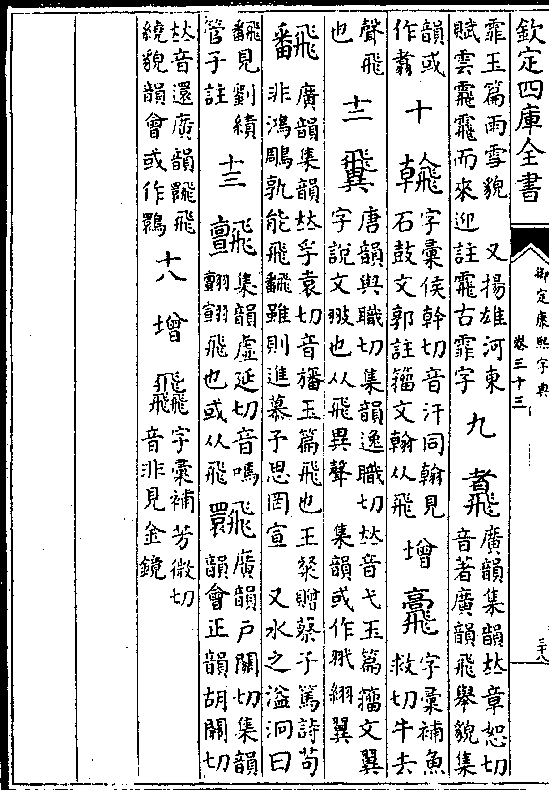 欽定四庫全書
御定康熙字典
卷三十三
三十八
霏玉篇雨雪貌 又揚雄河東
賦雲䨾䨾而來迎註䨾古霏字
九
䬡廣韻集韻𠀤章恕切
音著廣韻飛舉貌集
韻或
作翥
十
字彙侯幹切音汗同翰見
石鼓文郭註籀文翰从飛
增
字彙補魚
救切牛去
聲飛
也
十二
䬂唐韻與職切集韻逸職切𠀤音弋玉篇籀文翼
字說文翄也从飛異聲 集韻或作翐翀翼
飜廣韻集韻𠀤孚袁切音旛玉篇飛也王粲贈蔡子篤詩苟
非鴻鵰孰能飛飜雖則進慕予思罔宣 又水之溢泂曰
飜見劉績
管子註
十三
集韻虛延切音嗎
翾飛也或从飛
廣韻戶關切集韻
韻會正韻胡關切
𠀤音還廣韻飛
繞貌韻會或作
十八
增
字彙補芳微切
音非見金鏡